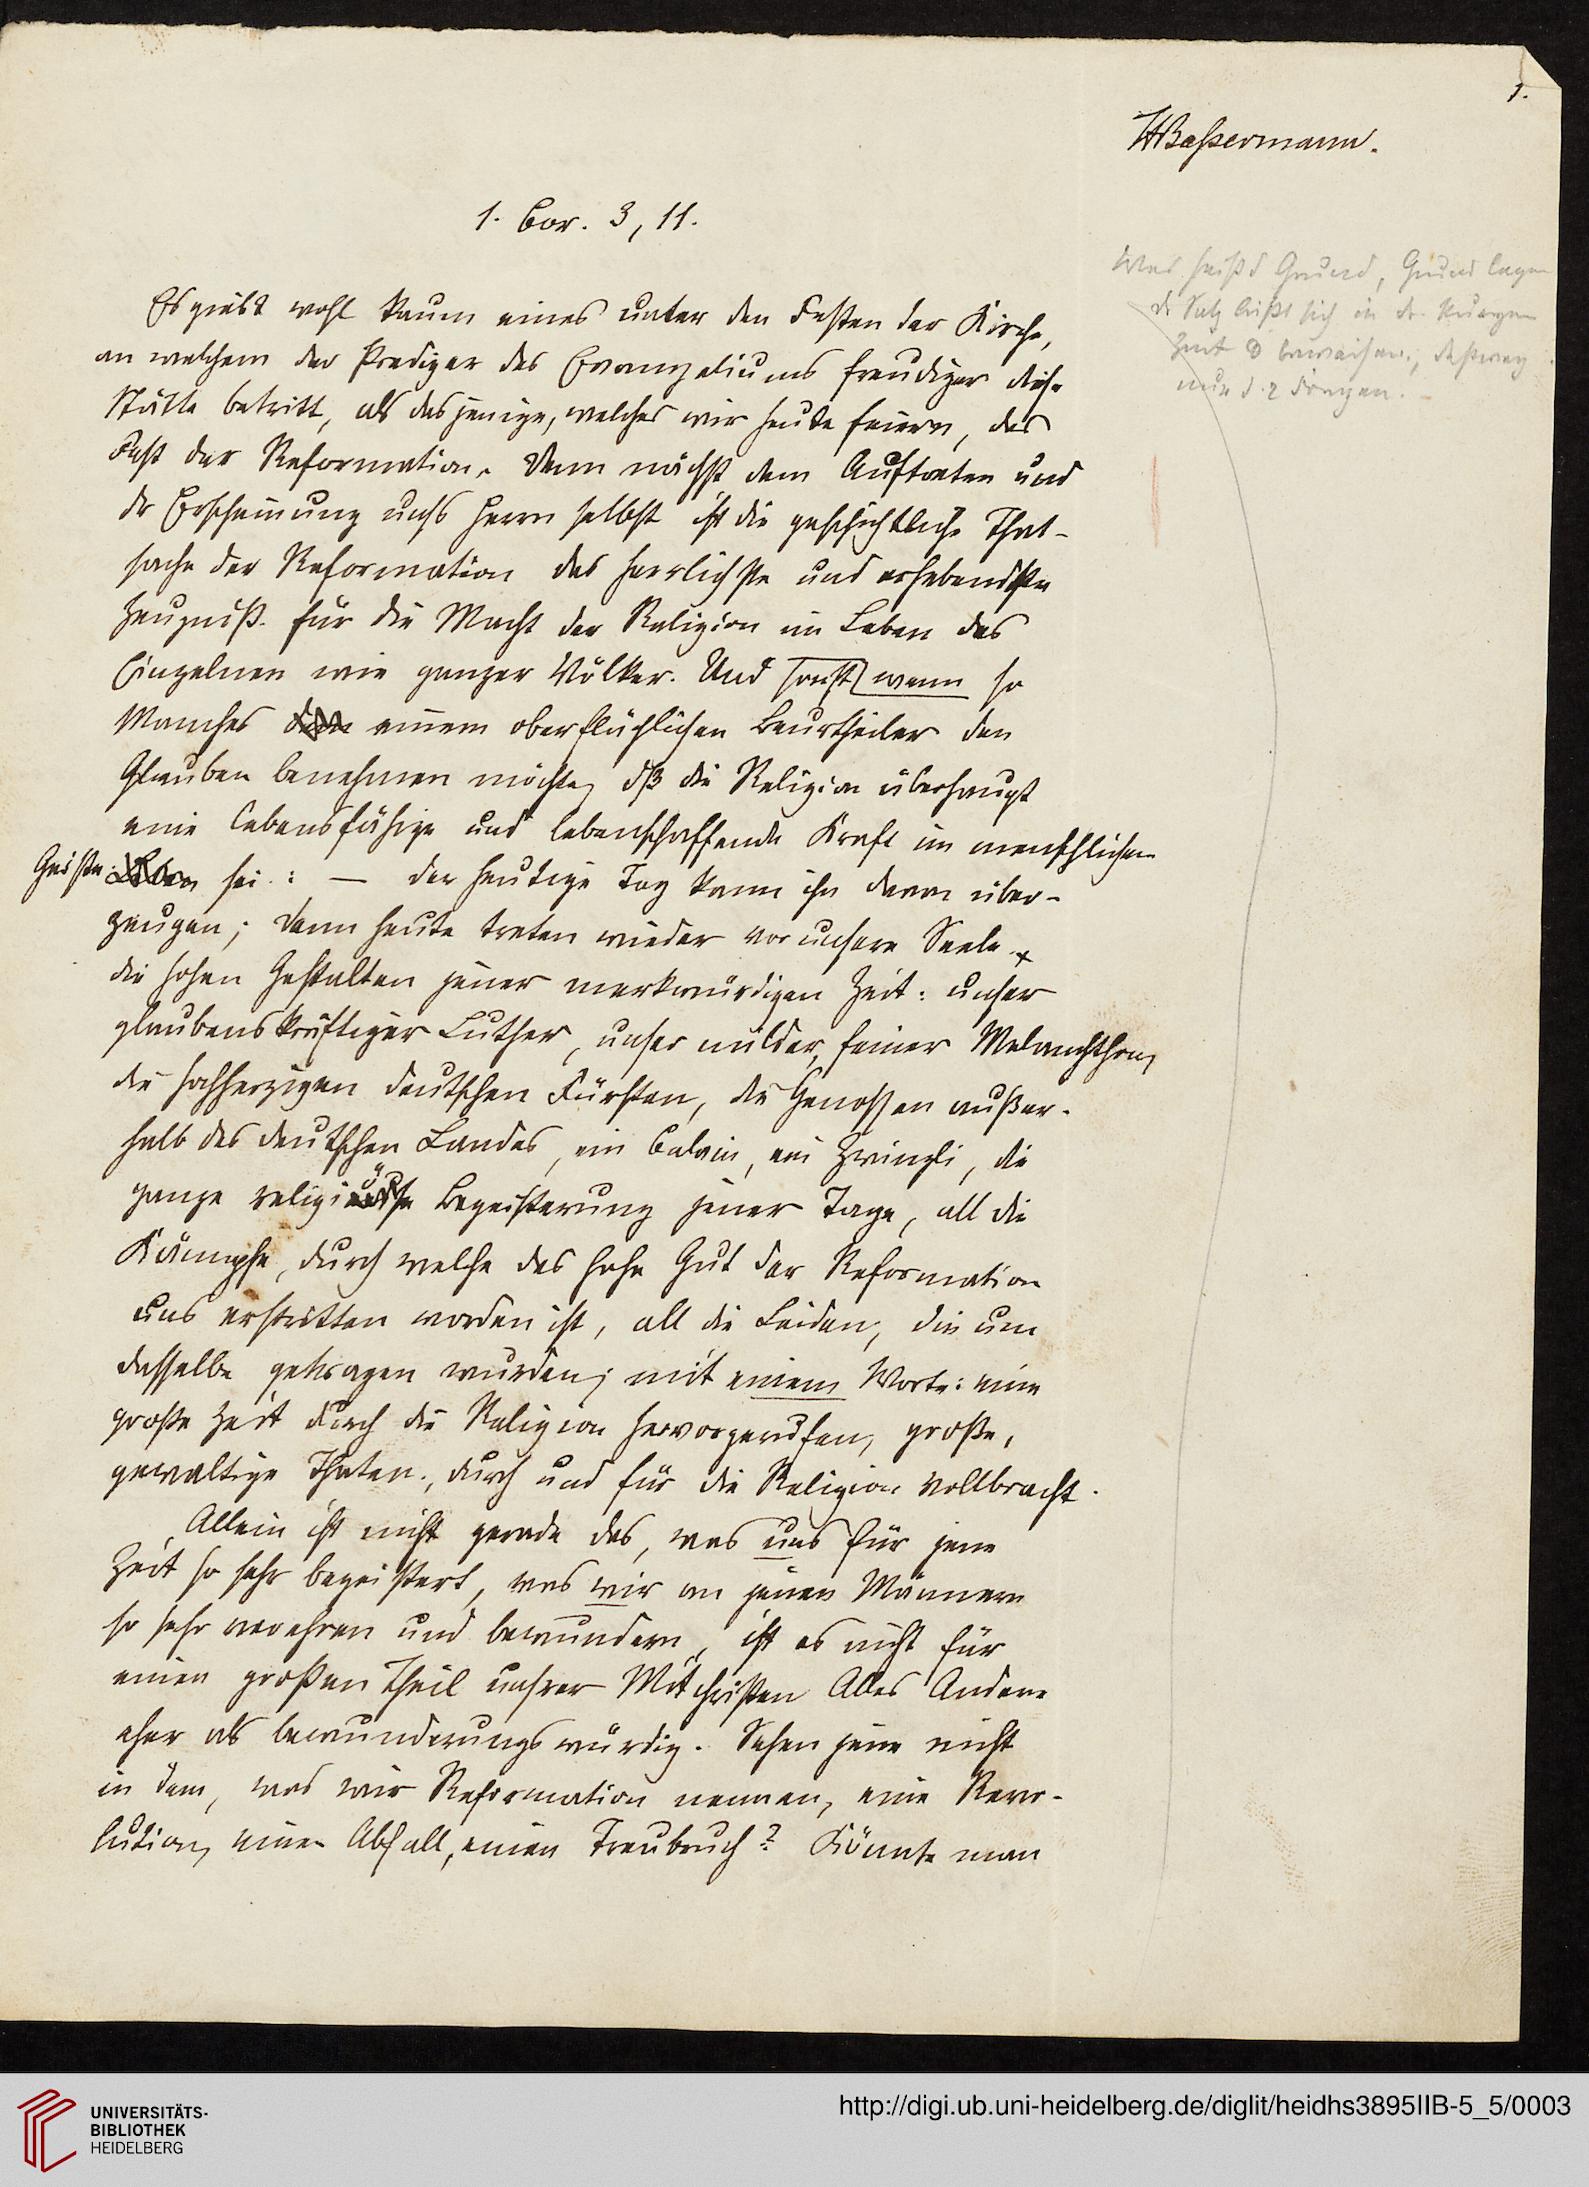 1.
HBaßermann.
1. Cor. 3, 11.
Was heißt Grund, Grund legen
d. Satz läßt sich in dr. kurzen
Zeit beweisen, deßweg
nur d. 2 Fragen.
Es giebt wohl kaum eines unter den Festen der Kirche,
an welchem der Prediger des Evangeliums freudiger diese
Stätte betritt, als dasjenige, welches wir heute feiern, das
Fest der Reformation. Denn nächst dem Auftreten und
dr Erscheinung unsrs Herrn selbst ist die geschichtliche That-
sache der Reformation das herrlichste und erhebendste
Zeugniß für die Macht der Religion im Leben des
Einzelnen wie ganzer Völker. Und sonst wenn so
Manches einem oberflächlichen Beurtheiler den
Glauben benehmen möchte, dß die Religion überhaupt
eine lebensfähige und lebenschaffende Kraft im menschlichen
Geiste Leben sei: — der heutige Tag kann ihn davon über-
zeugen; denn heute treten wieder vor unsere Seele
die hohen Gestalten jener merkwürdigen Zeit: unser
glaubenskräftiger Luther, unser milder, feiner Melanchthon,
die hochherzigen deutschen Fürsten, die Genossen außer-
halb des deutschen Landes, ein Calvin, ein Zwingli, die
ganze religiöse Begeisterung jener Tage, all die
Kämpfe, durch welche das hohe Gut der Reformation
uns erstritten worden ist, all die Leiden, die um
dasselbe getragen wurden; mit einem Worte: eine
große Zeit durch die Religion hervorgerufen, große,
gewaltige Thaten, durch und für die Religion vollbracht.
Allein ist nicht gerade das, was uns für jene
Zeit so sehr begeistert, was wir an jenen Männern
so sehr verehren und bewundern, ist es nicht für
einen großen Theil unsrer Mitchristen Alles Andere
eher als bewunderungswürdig. Sehen jene nicht
in dem, was wir Reformation nennen, eine Revo-
lution, einen Abfall, einen Treubruch? Könnte man
UNIVERSITÄTS-
BIBLIOTHEK
HEIDELBERG
http://digi.ub.uni-heidelberg.de/diglit/heidhs3895IIB-5_5/0003